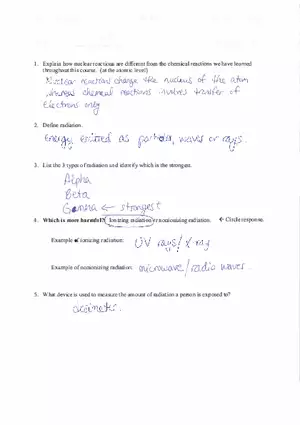 1. Explain how nuclear reactions are different from the chemical reactions we have learned
throughout this course. (at the atomic level)
Nuclear reactions change the nucleus of the atom
whereas chemical reactions involves transfer of
Electrons only
2. Define radiation.
Energy emitted as particles, waves or rays.
3. List the 3 types of radiation and identify which is the strongest.
Alpha
Beta
Gamma ← strongest
4. Which is more harmful? Ionizing radiation or nonionizing radiation. ← Circle response.
Example of ionizing radiation: UV rays / X-ray
Example of nonionizing radiation: microwave / radio waves.
5. What device is used to measure the amount of radiation a person is exposed to?